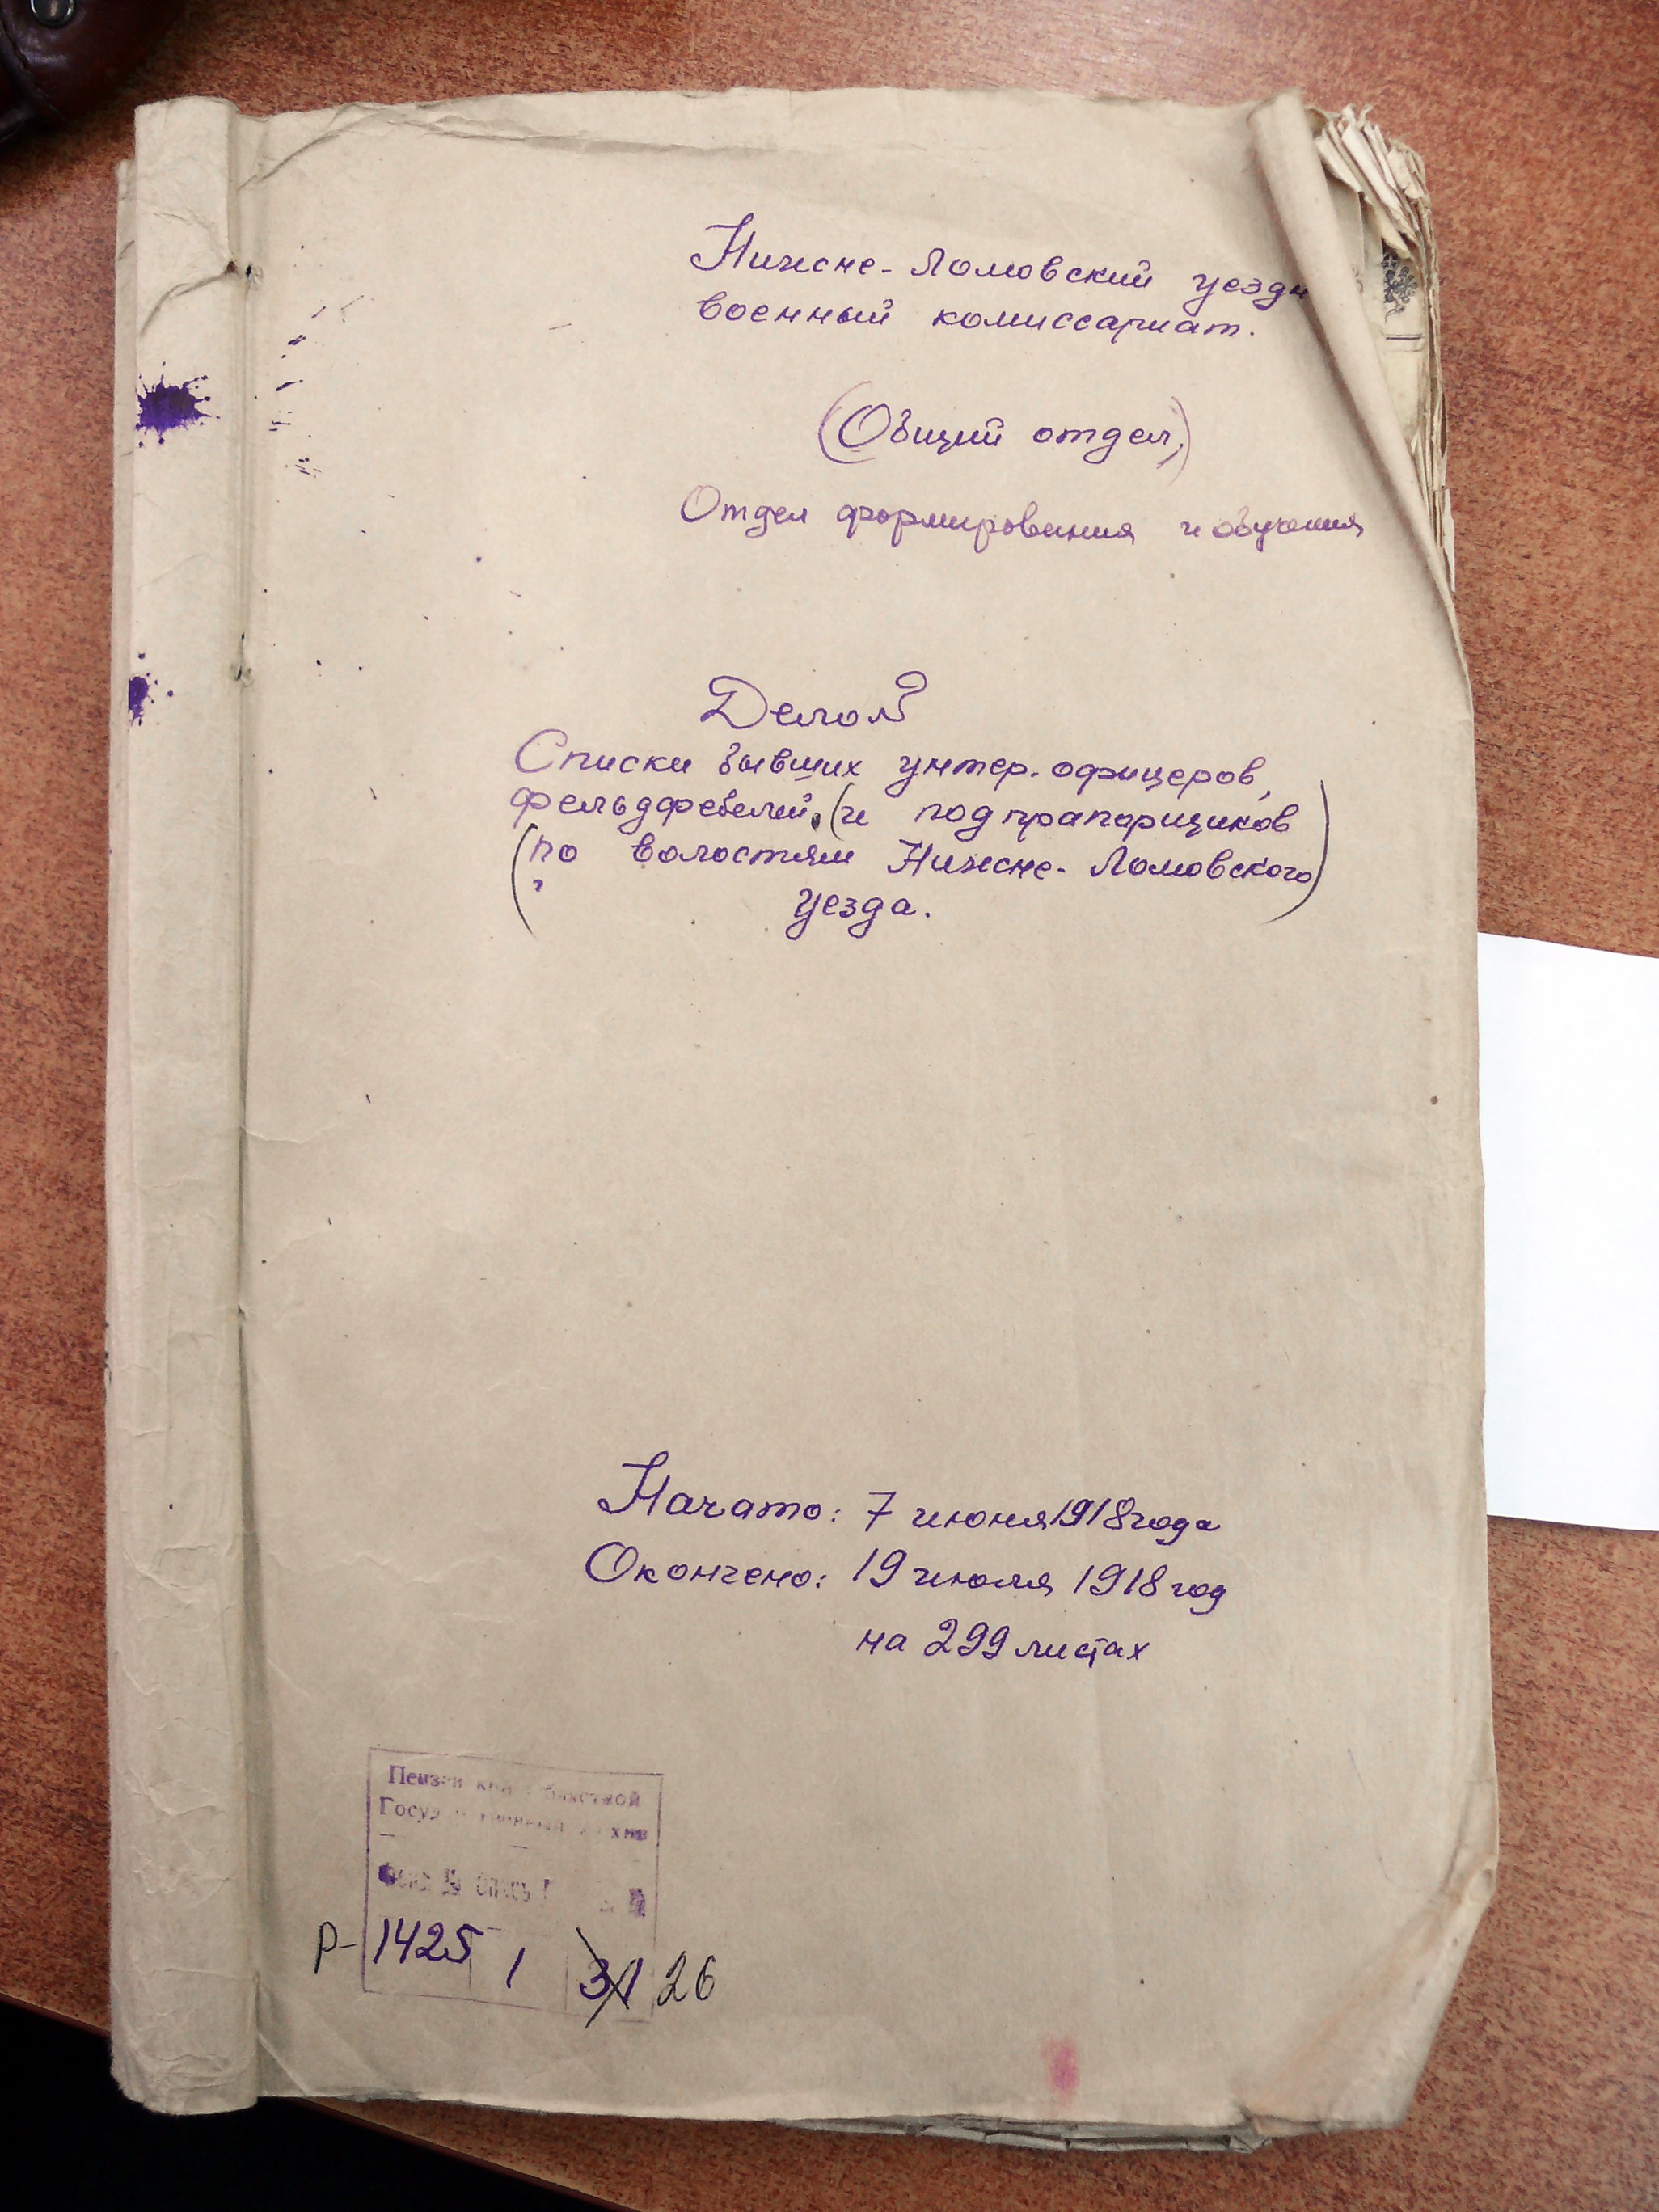 Нижне-Ломовский уездн
военный комиссариат.
(Общий отдел,)
Отдел формирования и обучения
Дело №
Списки бывших унтер-офицеров,
фельдфебелей, (и подпрапорщиков
(по волостям Нижне-Ломовского)
уезда.
Начато: 7 июня 1918 года
Окончено: 19 июля 1918 год
на 299 листах
Р-1425 1 31 26